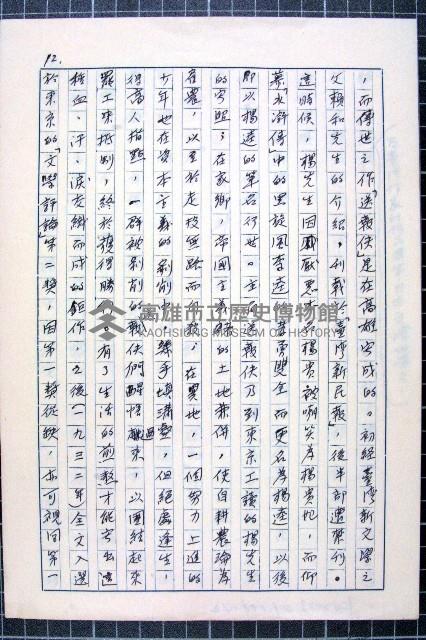 12.
，而傳世之作「送報伕」是在高雄寫成的。初經臺灣新文學之
父賴和先生的介紹，刊載於「臺灣新民報」，後半部遭禁刊。
這時候，楊先生因原本楊貴被嘲笑為楊貴妃，而仰
慕「水滸傳」中的黑旋風李逵忠勇雙全而更名為楊逵，以後
即以楊逵的筆名行世。「送報伕」乃到東京工讀的楊先生
的寫照；在家鄉，帝國主義的土地兼併，使自耕農淪為
在農，以至於走投無路而。在異地，一個努力上進的
少年也在資本主義的剝削中，幾乎填溝壑，但絕處逢生，
得高人指點，一群被剝削的報伕們醒悟過來，以團結起來
罷工來抵制，終於獲得勝。有了生活的前驗才能寫出這
種血、汗、淚交織而成的鉅作，之後（一九三二年）全文入選
於東京的「文學評論」第二獎，因第一獎從缺，亦可視同第一
高雄市立歷史博物館
KAOHSIUNG MUSEUM OF HISTORY